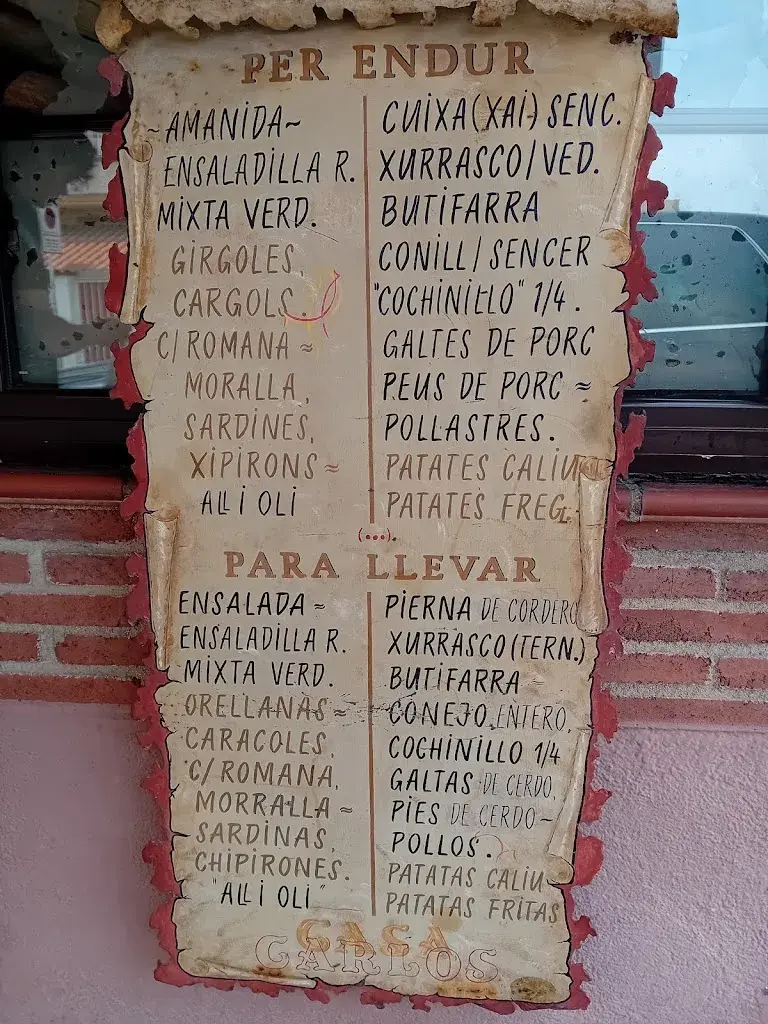 PER ENDUR
~AMANIDA~
ENSALADILLA R.
MIXTA VERD.
GIRGOLES,
CARGOLS.
C/ROMANA ≈
MORALLA,
SARDINES,
XIPIRONS ≈
ALL i OLI
CUIXA(XAI) SENC.
XURRASCO/VED.
BUTIFARRA
CONILL/SENCER
"COCHINILLO" 1/4.
GALTES DE PORC
PEUS DE PORC ≈
POLLASTRES.
PATATES CALIU
PATATES FREG.
(...).
PARA LLEVAR
ENSALADA ≈
ENSALADILLA R.
MIXTA VERD.
ORELLANAS ≈
CARACOLES,
C/ROMANA,
MORRALLA ≈
SARDINAS,
CHIPIRONES.
"ALL i OLI"
PIERNA DE CORDERO
XURRASCO(TERN.)
BUTIFARRA ≈
CONEJO, ENTERO,
COCHINILLO 1/4
GALTAS DE CERDO,
PIES DE CERDO~
POLLOS.
PATATAS CALIU
PATATAS FRITAS
CASA
CARLOS